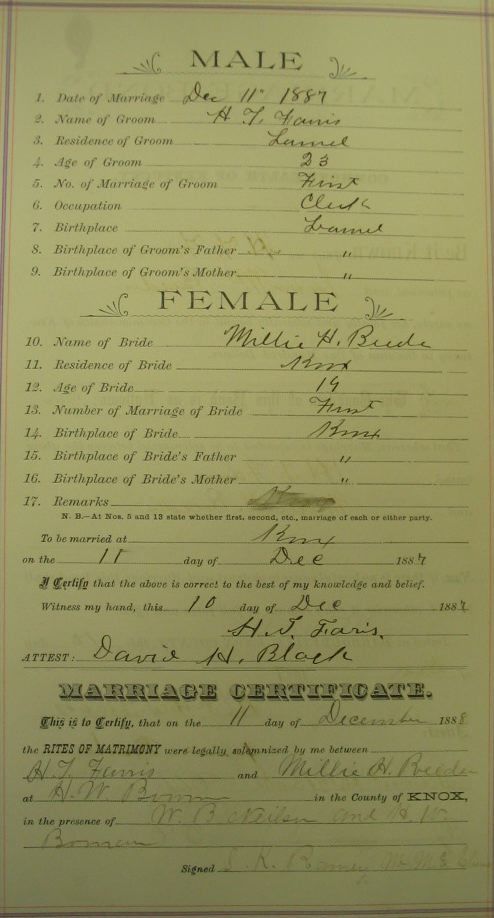 MALE
1. Date of Marriage Dec 11" 1887
2. Name of Groom H. T. Farris
3. Residence of Groom Laurel
4. Age of Groom 23
5. No. of Marriage of Groom First
6. Occupation Clerk
7. Birthplace Laurel
8. Birthplace of Groom's Father "
9. Birthplace of Groom's Mother "
FEMALE
10. Name of Bride Millie H.
11. Residence of Bride Knox
12. Age of Bride 19
13. Number of Marriage of Bride First
14. Birthplace of Bride Knox
15. Birthplace of Bride's Father "
16. Birthplace of Bride's Mother "
17. Remarks
N. B.—At Nos. 5 and 13 state whether first, second, etc., marriage of each or either party.
To be married at Knox
on the 11 day of Dec 1887
I Certify that the above is correct to the best of my knowledge and belief.
Witness my hand, this 10 day of Dec 1887
H. T. Faris.
ATTEST: David H. Black
MARRIAGE CERTIFICATE.
This is to Certify, that on the 11 day of December 1888
the RITES OF MATRIMONY were legally solemnized by me between
H. T. Farris and Millie H. Reeder
at H. W. in the County of KNOX,
in the presence of W. B. and
Signed